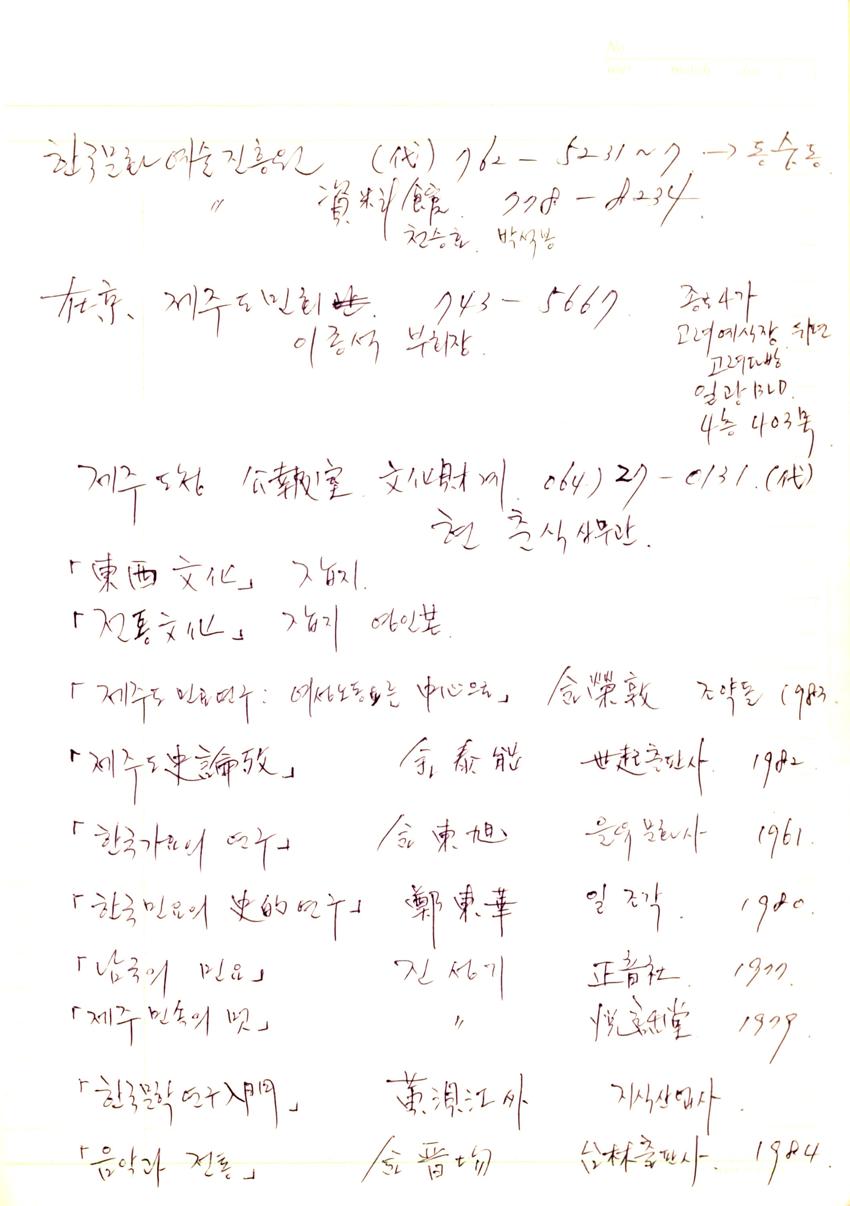 한국문화예술진흥원 (代) 762-5231~7 → 동숭동
〃 資料館. 778-8234.
천승호. 박석봉
在京、제주도민회 743-5667.
이종석 부회장.
종로4가
고려예식장 뒤편
고려다방
일광 BLD.
4층 403호
제주도청 公報室. 文化財계. 064) 27-0131. (代)
현춘식 사무관.
「東西文化」 잡지.
「전통文化」 잡지 영인본.
「제주도 민요연구: 여성노동요를 中心으로」 金榮敦 조약돌 1983.
「제주도史論攷」 金泰能 世起출판사. 1982.
「한국가요의 연구」 金東旭 을유문화사 1961.
「한국민요의 史的연구」 鄭東華 일조각. 1980.
「남국의 민요」 진성기 正音社. 1977.
「제주민속의 멋」 〃 悅話堂 1979.
「한국문학연구入門」 黃浿江外 지식산업사.
「음악과 전통」 金晋均 台林출판사. 1984.